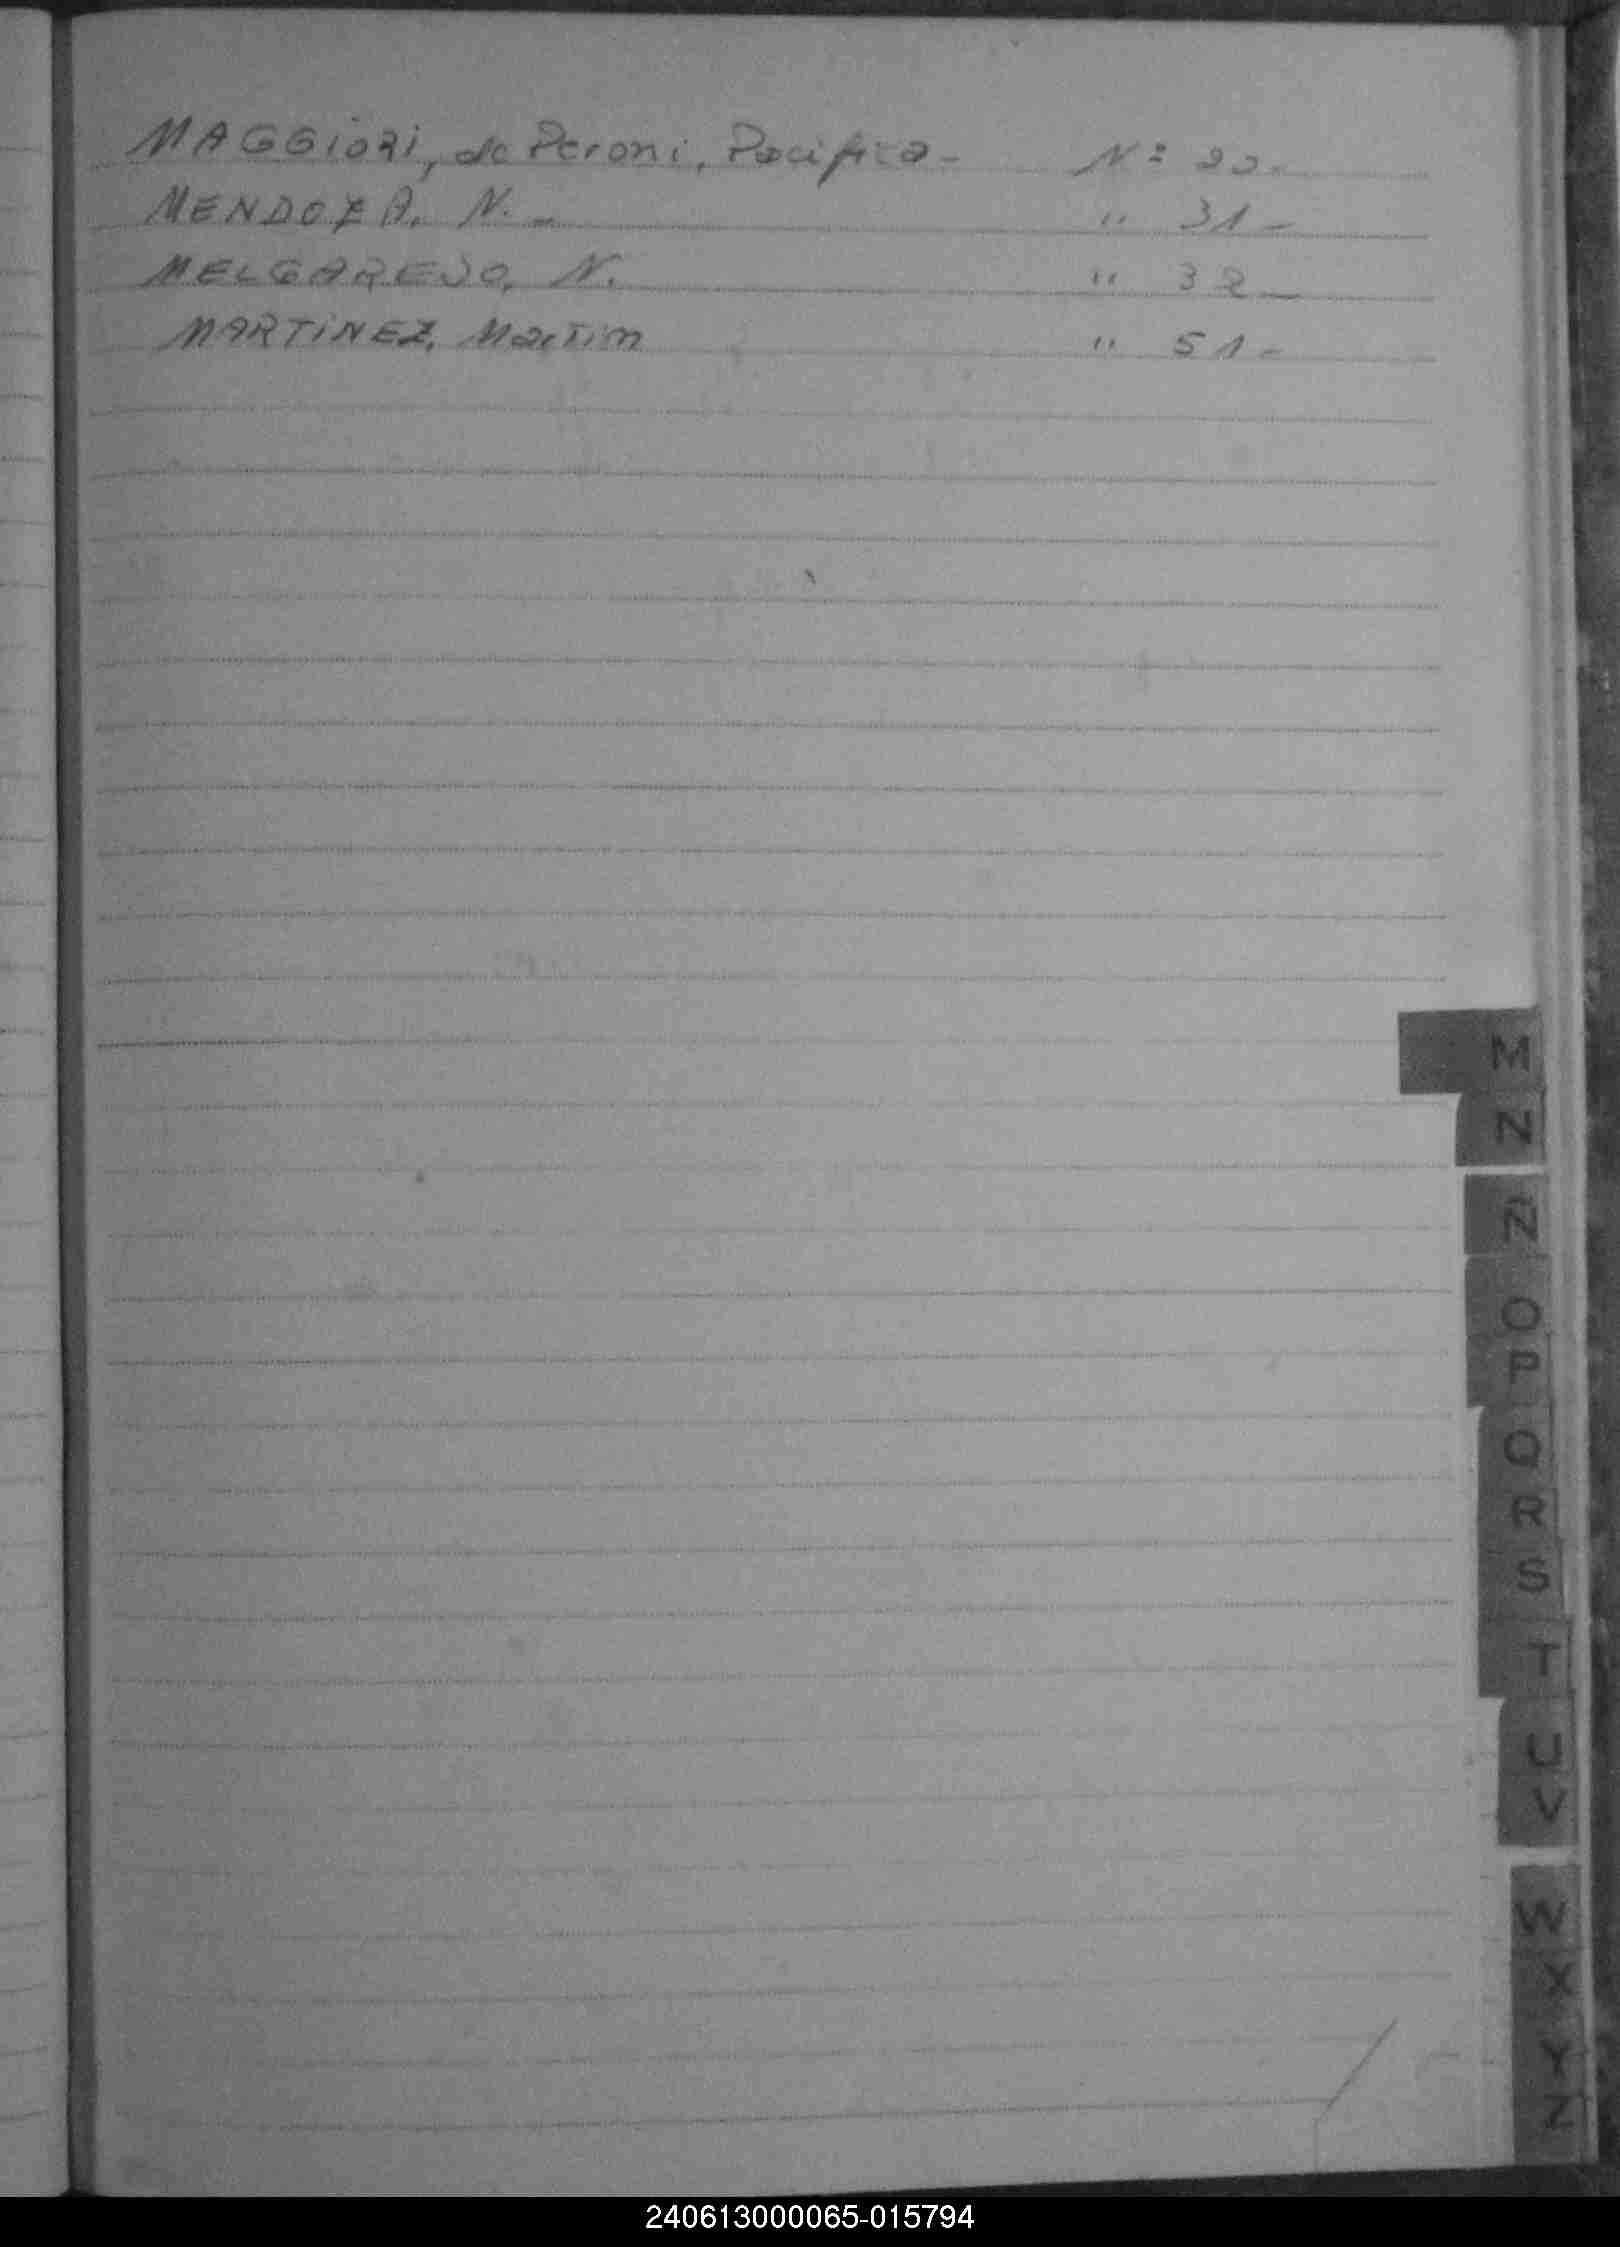 MAGGiORi, de Peroni, Pacifica- Nº 22-
MENDOZA, N. - " 31-
MELGAREJO, N. " 32-
MARTiNEZ, Martin " 51-
M
N
Ñ
O
P
Q
R
S
T
U
V
W
X
Y
Z
240613000065-015794